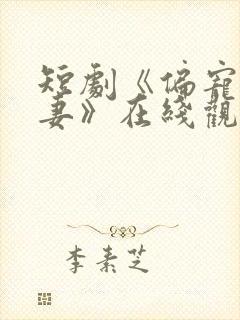 短劇《偏寵
妻》在綫觀
李素芝